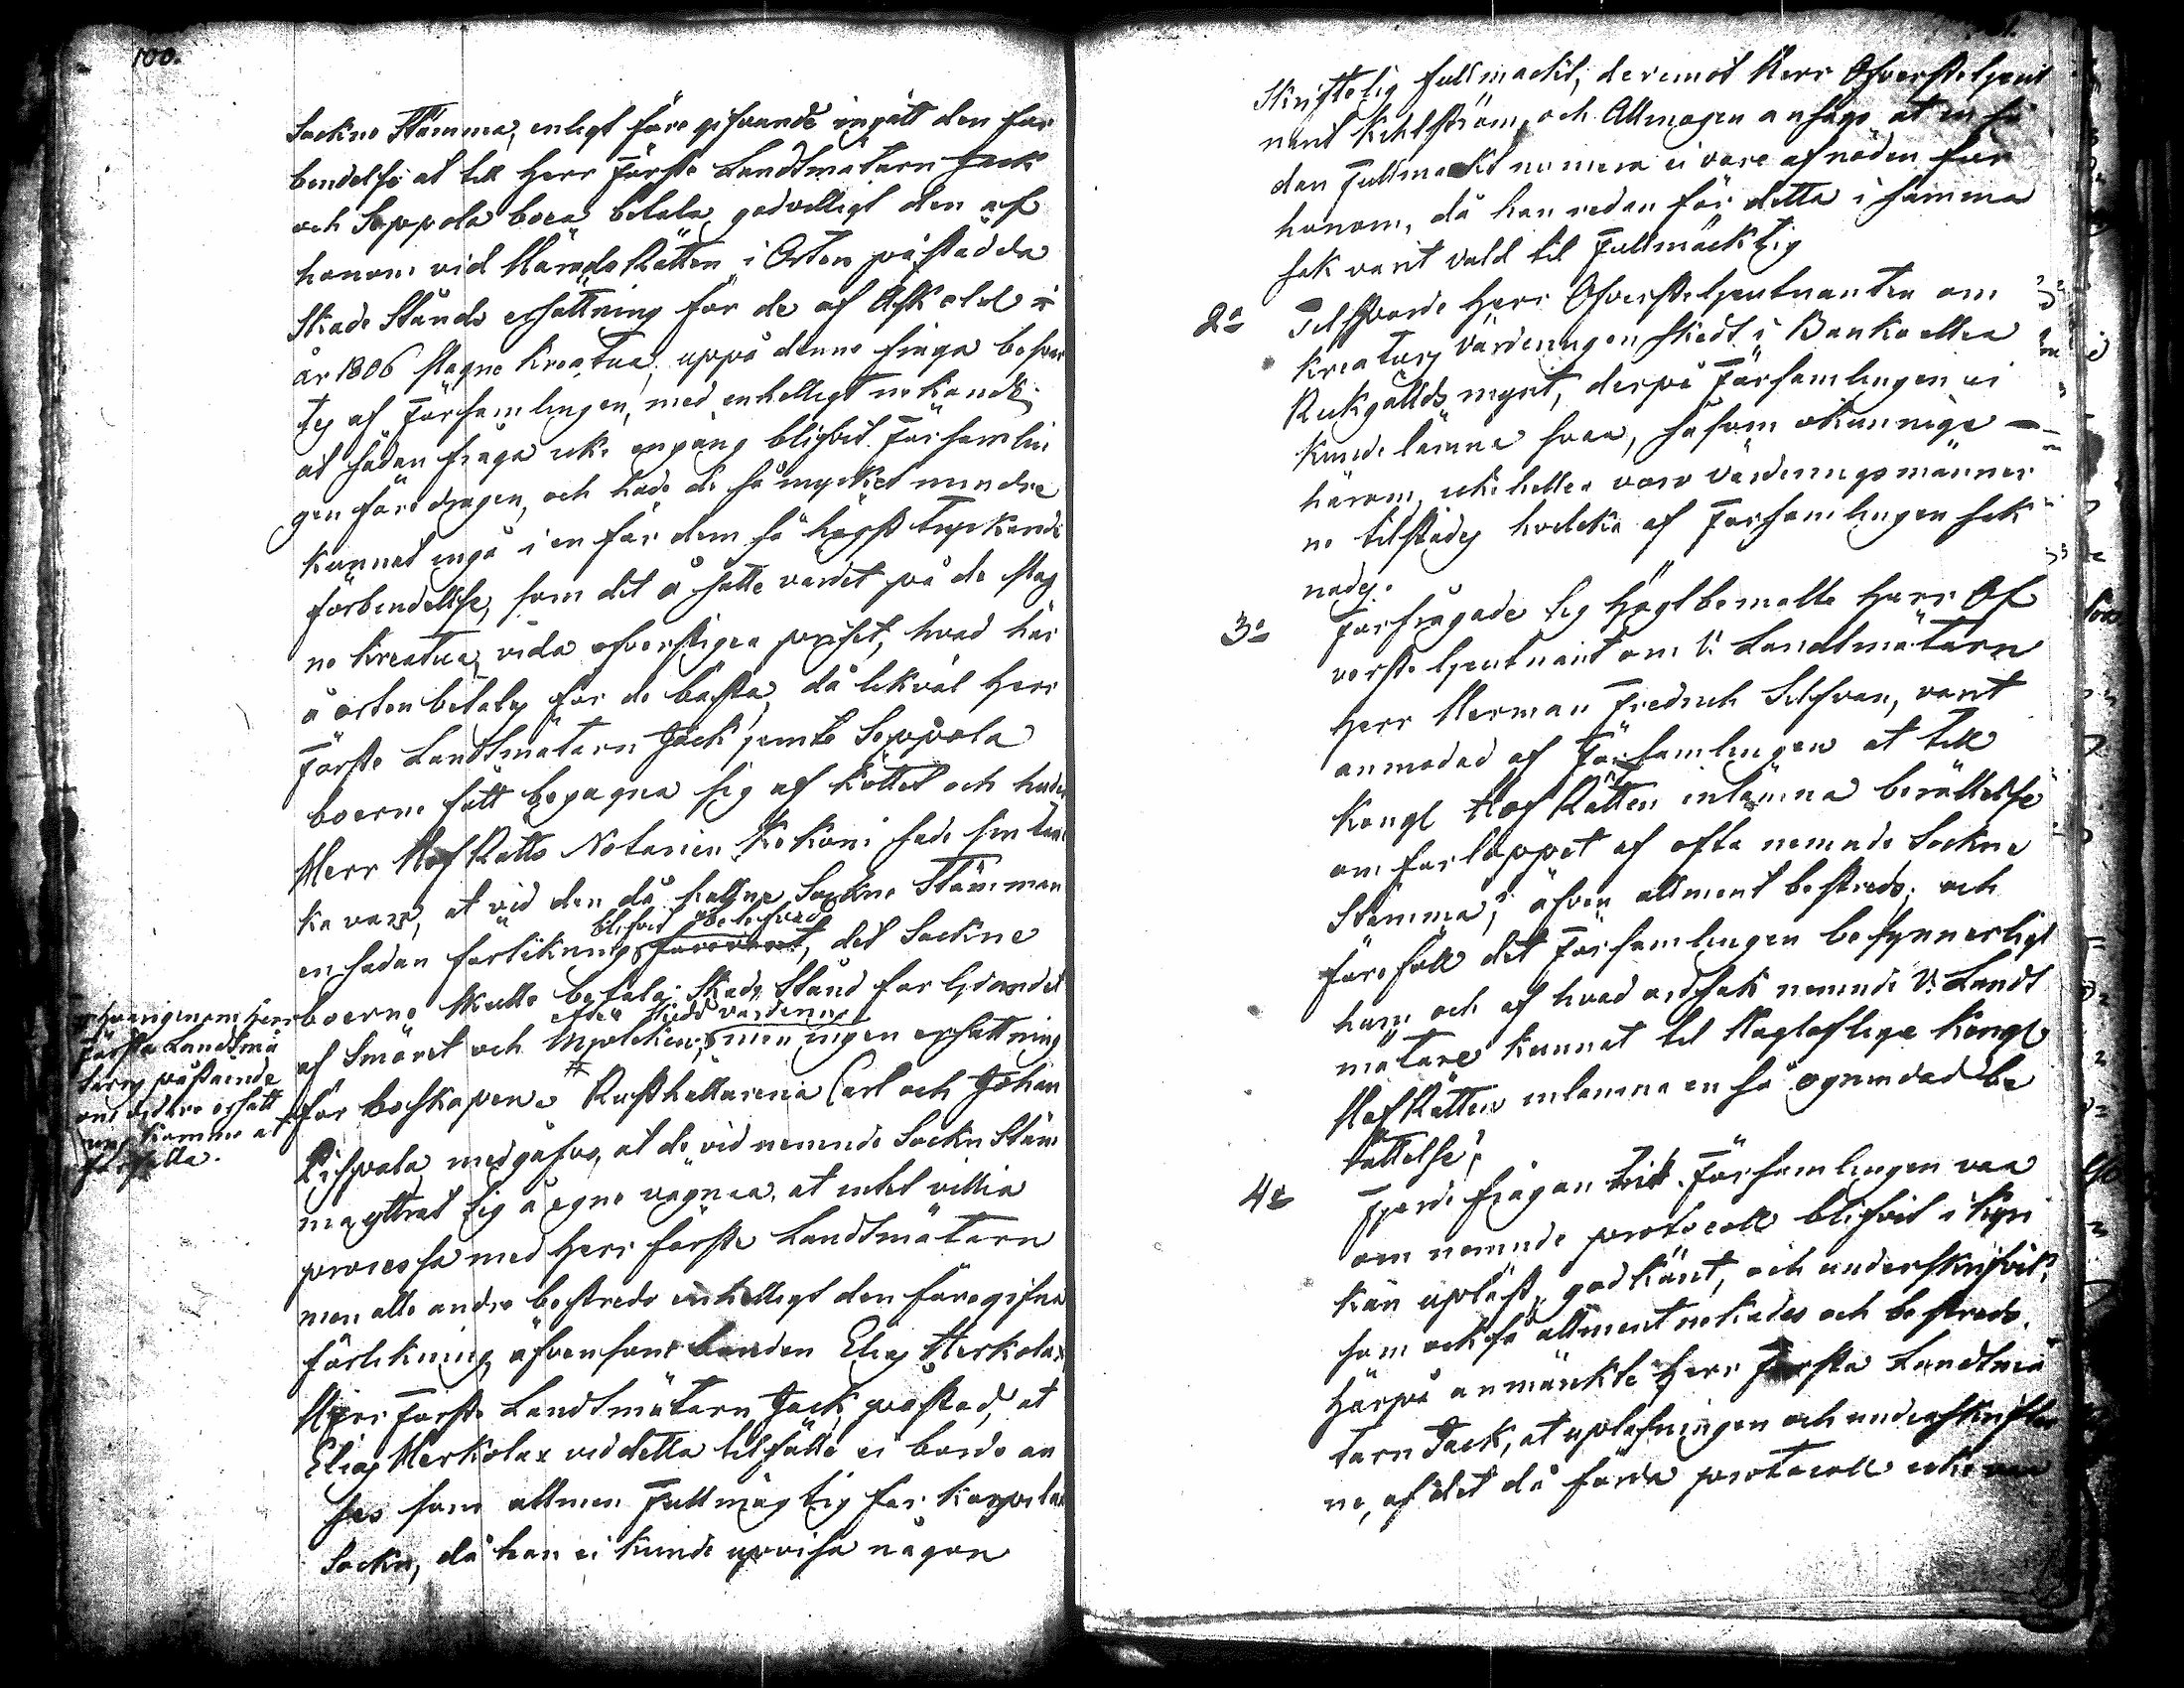 100.
Sockne Stämma, enligt före gifvande ingått den för
bindelse at till Herr Förste Landtmätarn Jack
och Seppola boer betala godvilligt den af
honom vid Härads Rätten i Orten påstådda
Skade Stånds ersättning för de af Åskeld
år 1806 slagne Kreatur, uppå denne fråga besvar
tes af Församlingen, med enhelligt nekande
at sådan fråga icke engång blifvit Församlin
gen föredragen, och hade de så mycket mindre
kunnat ingå i en för dem så högst tryckande
förbindellse, som det å satte värdet på de slag
ne Kreatur, vida öfverstiger priset, hvad här
å orten betales för de bästa, då likväl Herr
Förste Landtmätarn Jack jemte Seppola
boerne fått begagna sig af köttet och huden
Herr HofRätts Notarien Kokoni sade sin tan
ka vara, at vid den då hallne Sockne Stämman
blifvit
en sådan förlikning förevarit, det Sockne
boerne skulle betala Skade Stånd för lidandet
efter skedd värdering
af Smöret och Mjölken, men ingen ersättning
för boskapen. # Rusthållarena Carl och Johan
Rispala, medgåfvo, at de vid nemnde Sockn Stäm
ma yttrat sig å egne vägnar, at intet villia
processa med Herr Förste Landtmätarn
men alle andre bestredo enhälligt den föregifna
förlikning, äfvensom bonden Elias Herkolax
Herr Förste Landtmätarn Jack, påstod, at
Elias Herkolax vid detta tilfälle ei borde an
ses som allmen Fullmägtig för Karpela
Sockn, då han ei kunde uppvisa någon
# Hvarigenom Herr
Första Landtmä
tarns påstående
om vidare ersätt
ning kommo at
förfalla.
Skriftelig fullmackt, deremot Herr Öfverstelieut
nant Kihlström, och Allmogen ansågo at en så
dan Fullmackt numera ei vore af nöden för
honom, då han redan för detta i samma
sak varit vald til Fullmäcktig
2o Tilsporde Herr Öfverstelieutnanten om
Kreaturs Värderingen skedt i Banko eller
Riksgällds mynt, derpå Församlingen ei
kunde lämna svar, såsom okunnige
härom, icke heller voro Värderingsmänner
ne tilstädes hvilcka af Församlingen sak
nades.
3o Förfrågade sig Högtbemälte Herr Öf
verstelieutnant om V. Landtmätarn
Herr Herman Fredrich Silfvan, varit
anmodad af Församlingen at till
Kongl HofRätten inlämna berättelse
om förloppet af ofta nemnde Sockne
Stämma; äfven allment bestreds; och
föreföll det Församlingen besynnerligt
huru och af hvad ordsak nemnde V. Landt
mätare kunnat til Högloflige Kongl
HofRätten inlämna en så ogrundad be
rättelse;
4o Fjerde frågan till Församlingen var
om nemnde protocoll blifvit i Kyr
kan upläst, godkänt, och underskrifvit?
som också allment nekades och bestreds.
Härpå anmärckte Herr Första Landtmä
tarn Jack, at upläsningen och underskrifter
ne, af det då förda protocoll icke var